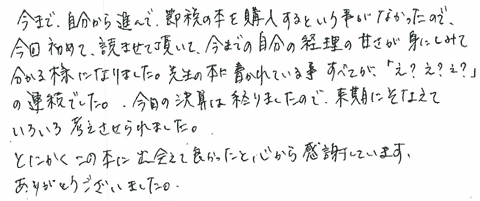 今まで、自分から進んで、節税の本を購入するという事がなかったので、
今回初めて、読ませて頂いて、今までの自分の経理の甘さが身にしみて
分かる様になりました。先生の本に書かれている事すべてが、「え?え?え?」
の連続でした。今回の決算は終りましたので、来期にそなえて
いろいろ考えさせられました。
とにかくこの本に出会えて良かったと、心から感謝しています。
ありがとうございました。